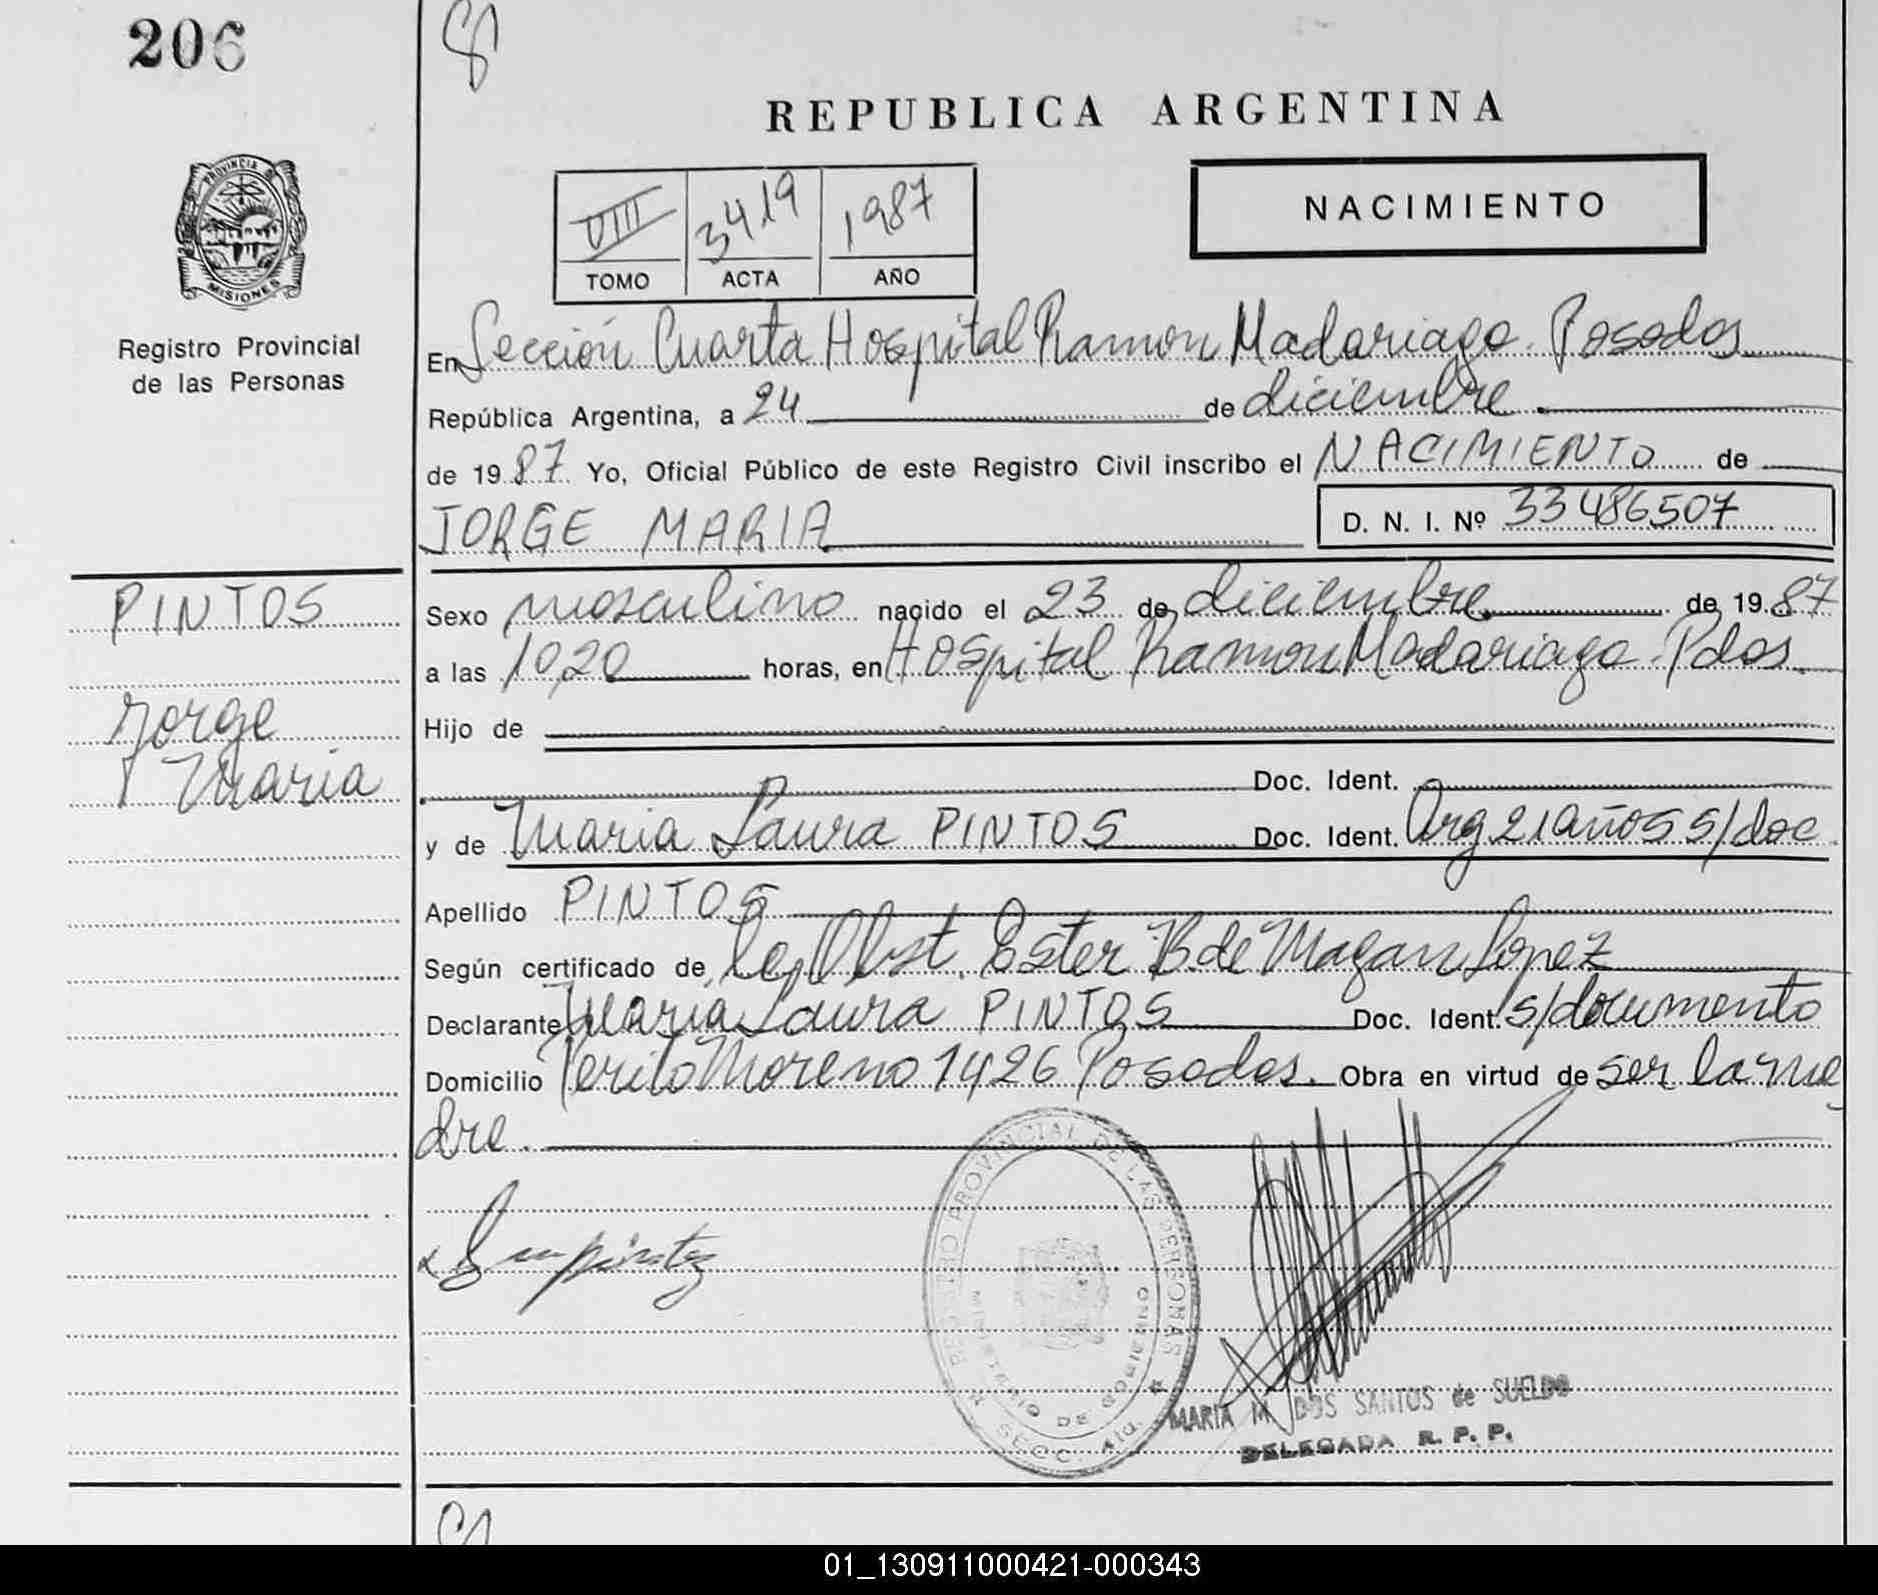 206
REPUBLICA ARGENTINA
PROVINCIA
MISIONES
Registro Provincial
de las Personas
VIII 3419 1987
TOMO ACTA AÑO
NACIMIENTO
En Sección Cuarta Hospital Ramon Madariaga. Posadas
República Argentina, a 24 de diciembre.
de 19 87. Yo, Oficial Público de este Registro Civil inscribo el NACIMIENTO de
JORGE MARIA
D. N. I. Nº 33486507
PINTOS
Jorge
Maria
Sexo masculino nacido el 23 de diciembre de 19 87
a las 10,20 horas, en Hospital Ramon Madariaga. Pdas.
Hijo de
Doc. Ident.
y de Maria Laura PINTOS Doc. Ident. Arg 21 años s/doc.
Apellido PINTOS
Según certificado de Obst. Ester B. de Magan Lopez
Declarante Maria Laura PINTOS Doc. Ident. s/documento
Domicilio Perito Moreno 1426 Posadas. Obra en virtud de ser la ma
dre.
REGISTRO PROVINCIAL DE LAS PERSONAS
MINISTERIO DE GOBIERNO
SECC. 4ta.
MARIA M. DOS SANTOS de SUELDO
DELEGADA R. P. P.
01_130911000421-000343